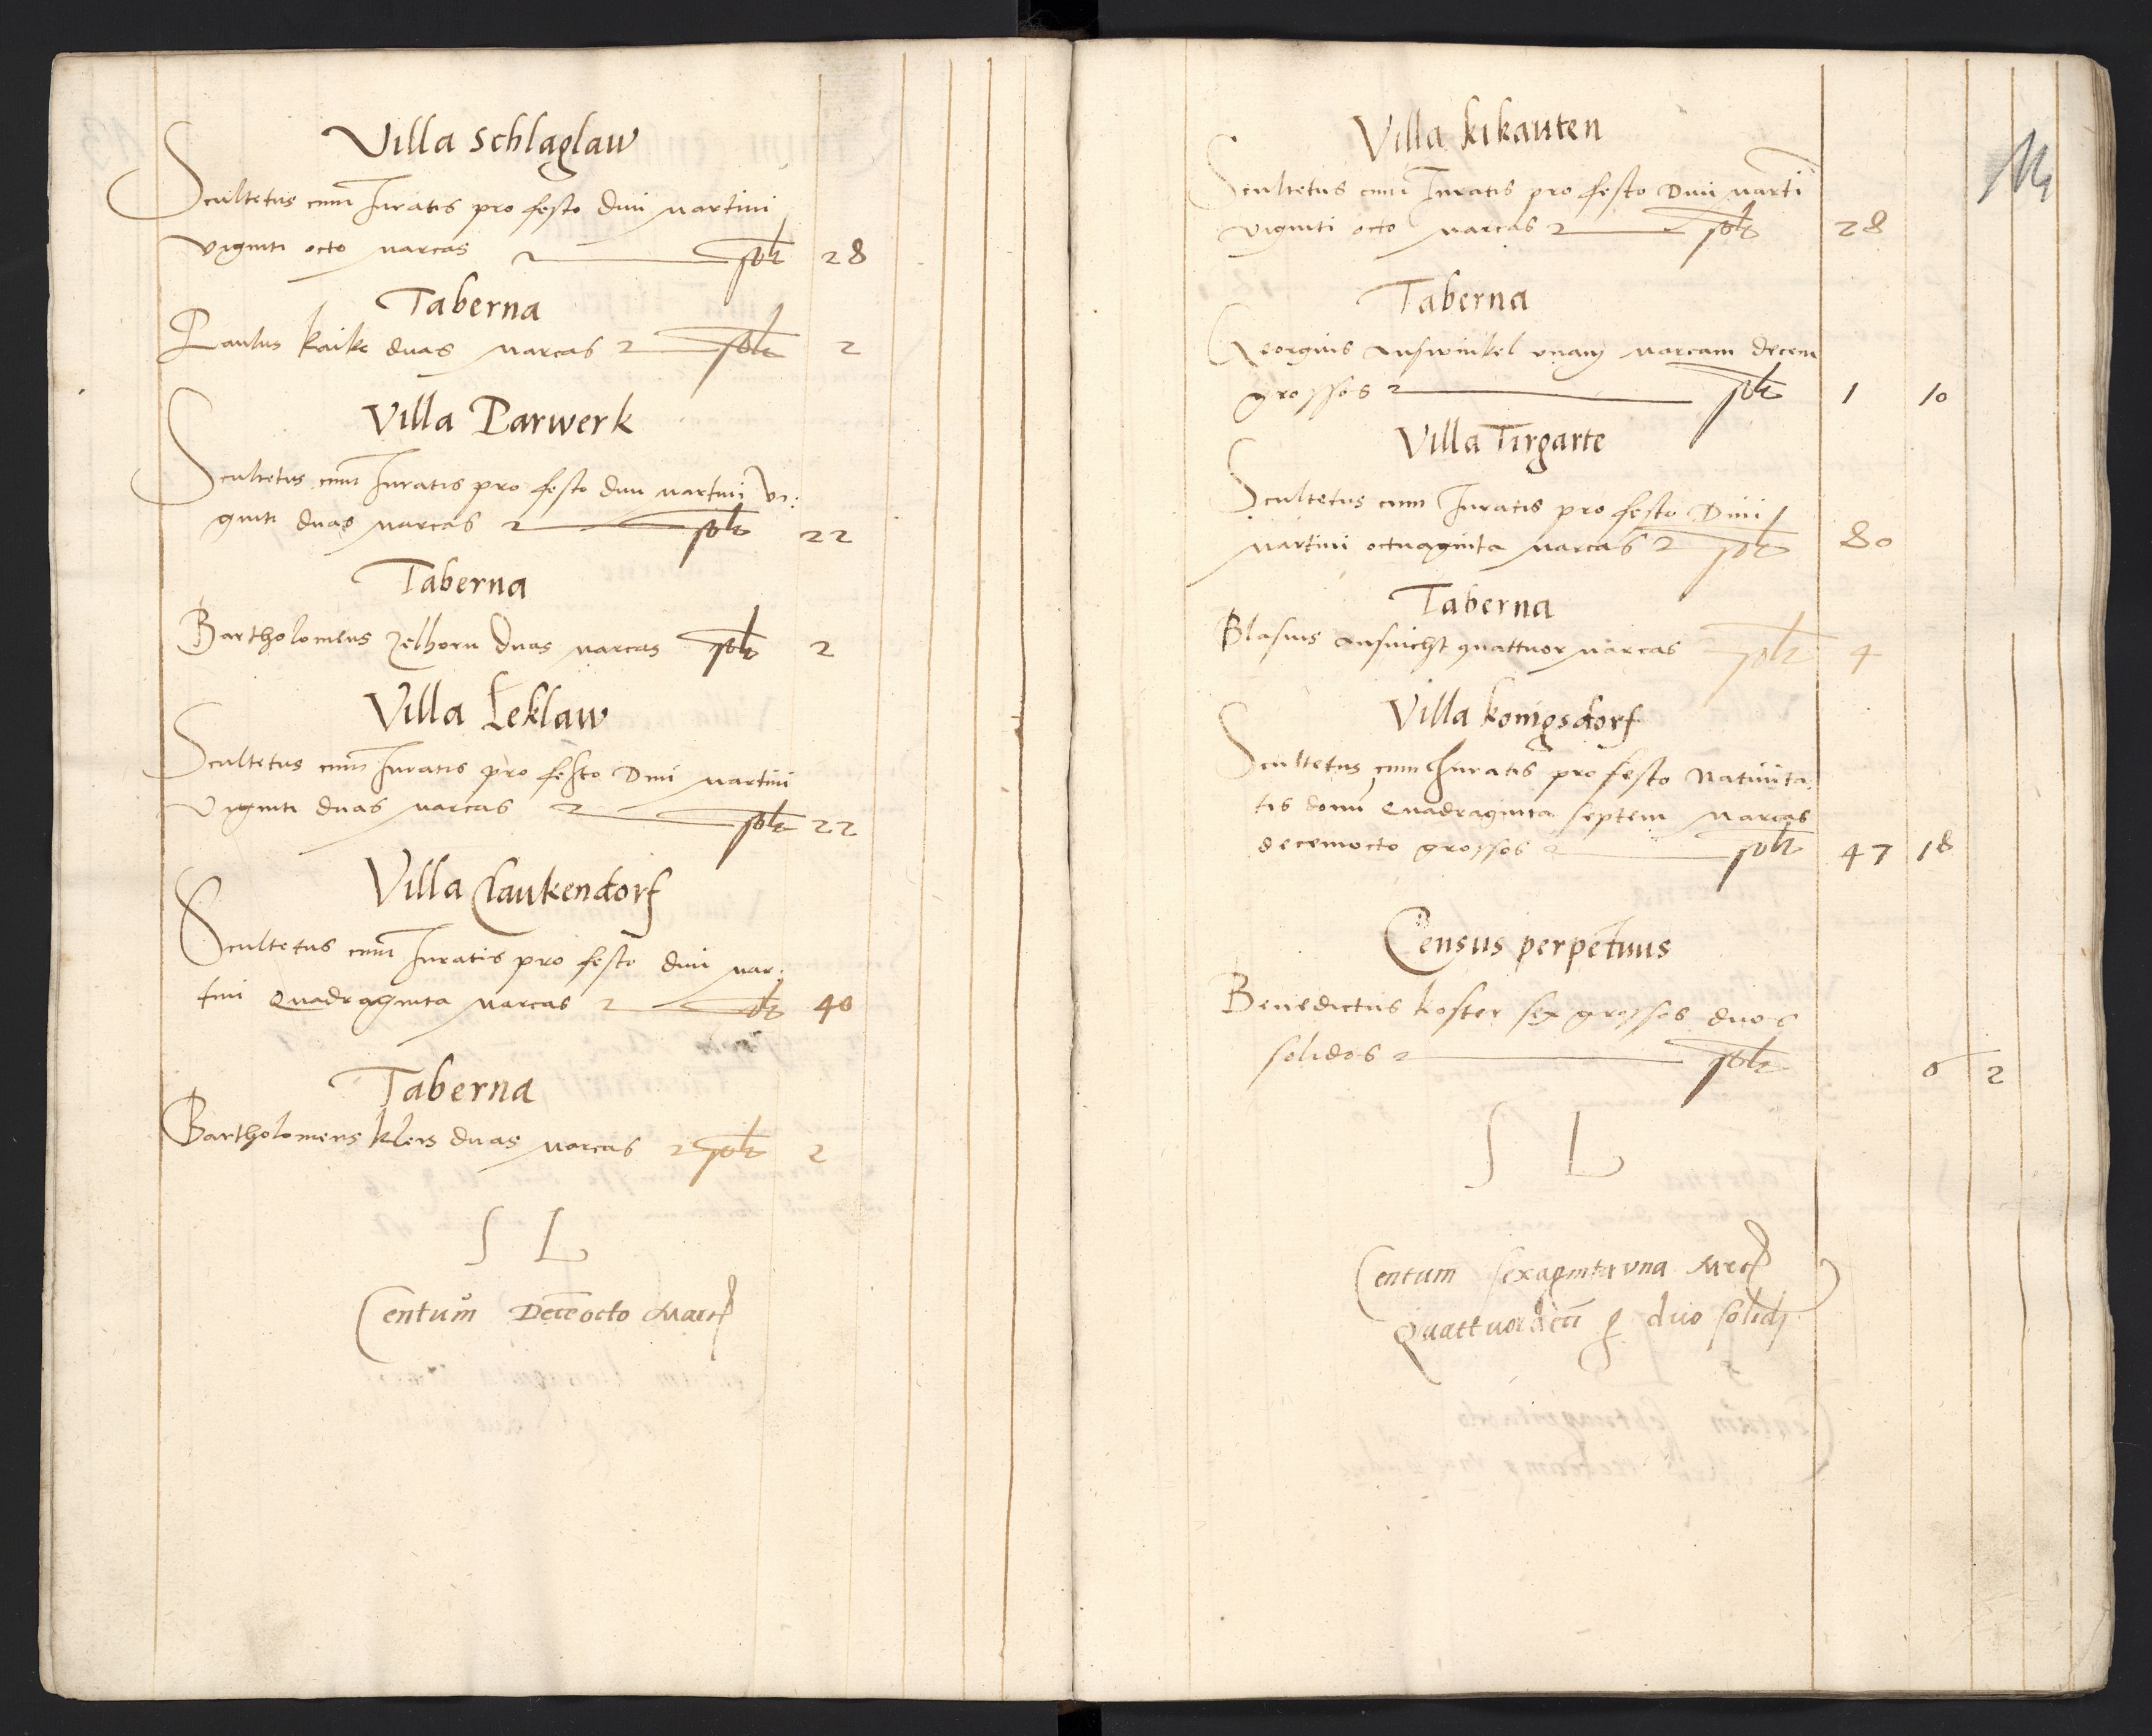 Villa Schlaglaw
Scultetus cum Juratis pro festo divi Martini
viginti octo Marcas solt 28
Taberna
Paulus Kaike duas Marcas solt 2
Villa Parwerk
Scultetus cum Juratis pro festo divi Martini Vi:
ginti duas Marcas solt 22
Taberna
Bartholomeus Zelhorn duas Marcas solt 2
Villa Leklaw
Scultetus cum Juratis pro festo Divi Martini
Viginti duas Marcas solt 22
Villa Claukendorf
Scultetus cum Juratis pro festo divi Mar:
tini Quadraginta Marcas solt 40
Taberna
Bartholomeus Kleis duas Marcas solt 2
S L
Centum Decēocto Marc
Villa Kikauten
Scultetus cum Juratis pro festo Divi Marti
viginti octo Marcas solt 28
Taberna
Georgius Answinkel unam Marcam decem
grossos solt 1 10
Villa Tirgarte
Scultetus cum Juratis pro festo Divi
Martini octuaginta Marcas solt 80
Taberna
Blasius quattuor Marcas solt 4
Villa Konigsdorf
Scultetus cum Juratis pro festo Nativita:
tis domi Quadraginta septem Marcas
decemocto grossos solt 47 18
Census perpetuus
Benedictus Koster sex grossos duos
solidos solt 6 2
S L
Centum sexaginta una Mrc
Quattuordeci g duo solidi